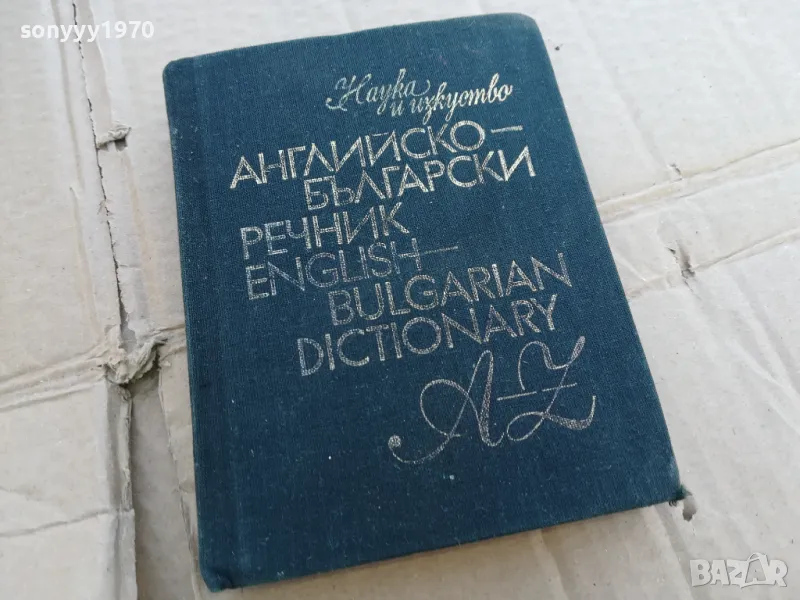 sonyyy1970
Наука
и изкуство
АНГЛИЙСКО–
БЪЛГАРСКИ
РЕЧНИК
ENGLISH–
BULGARIAN
DICTIONARY
A–Z
BAZAR